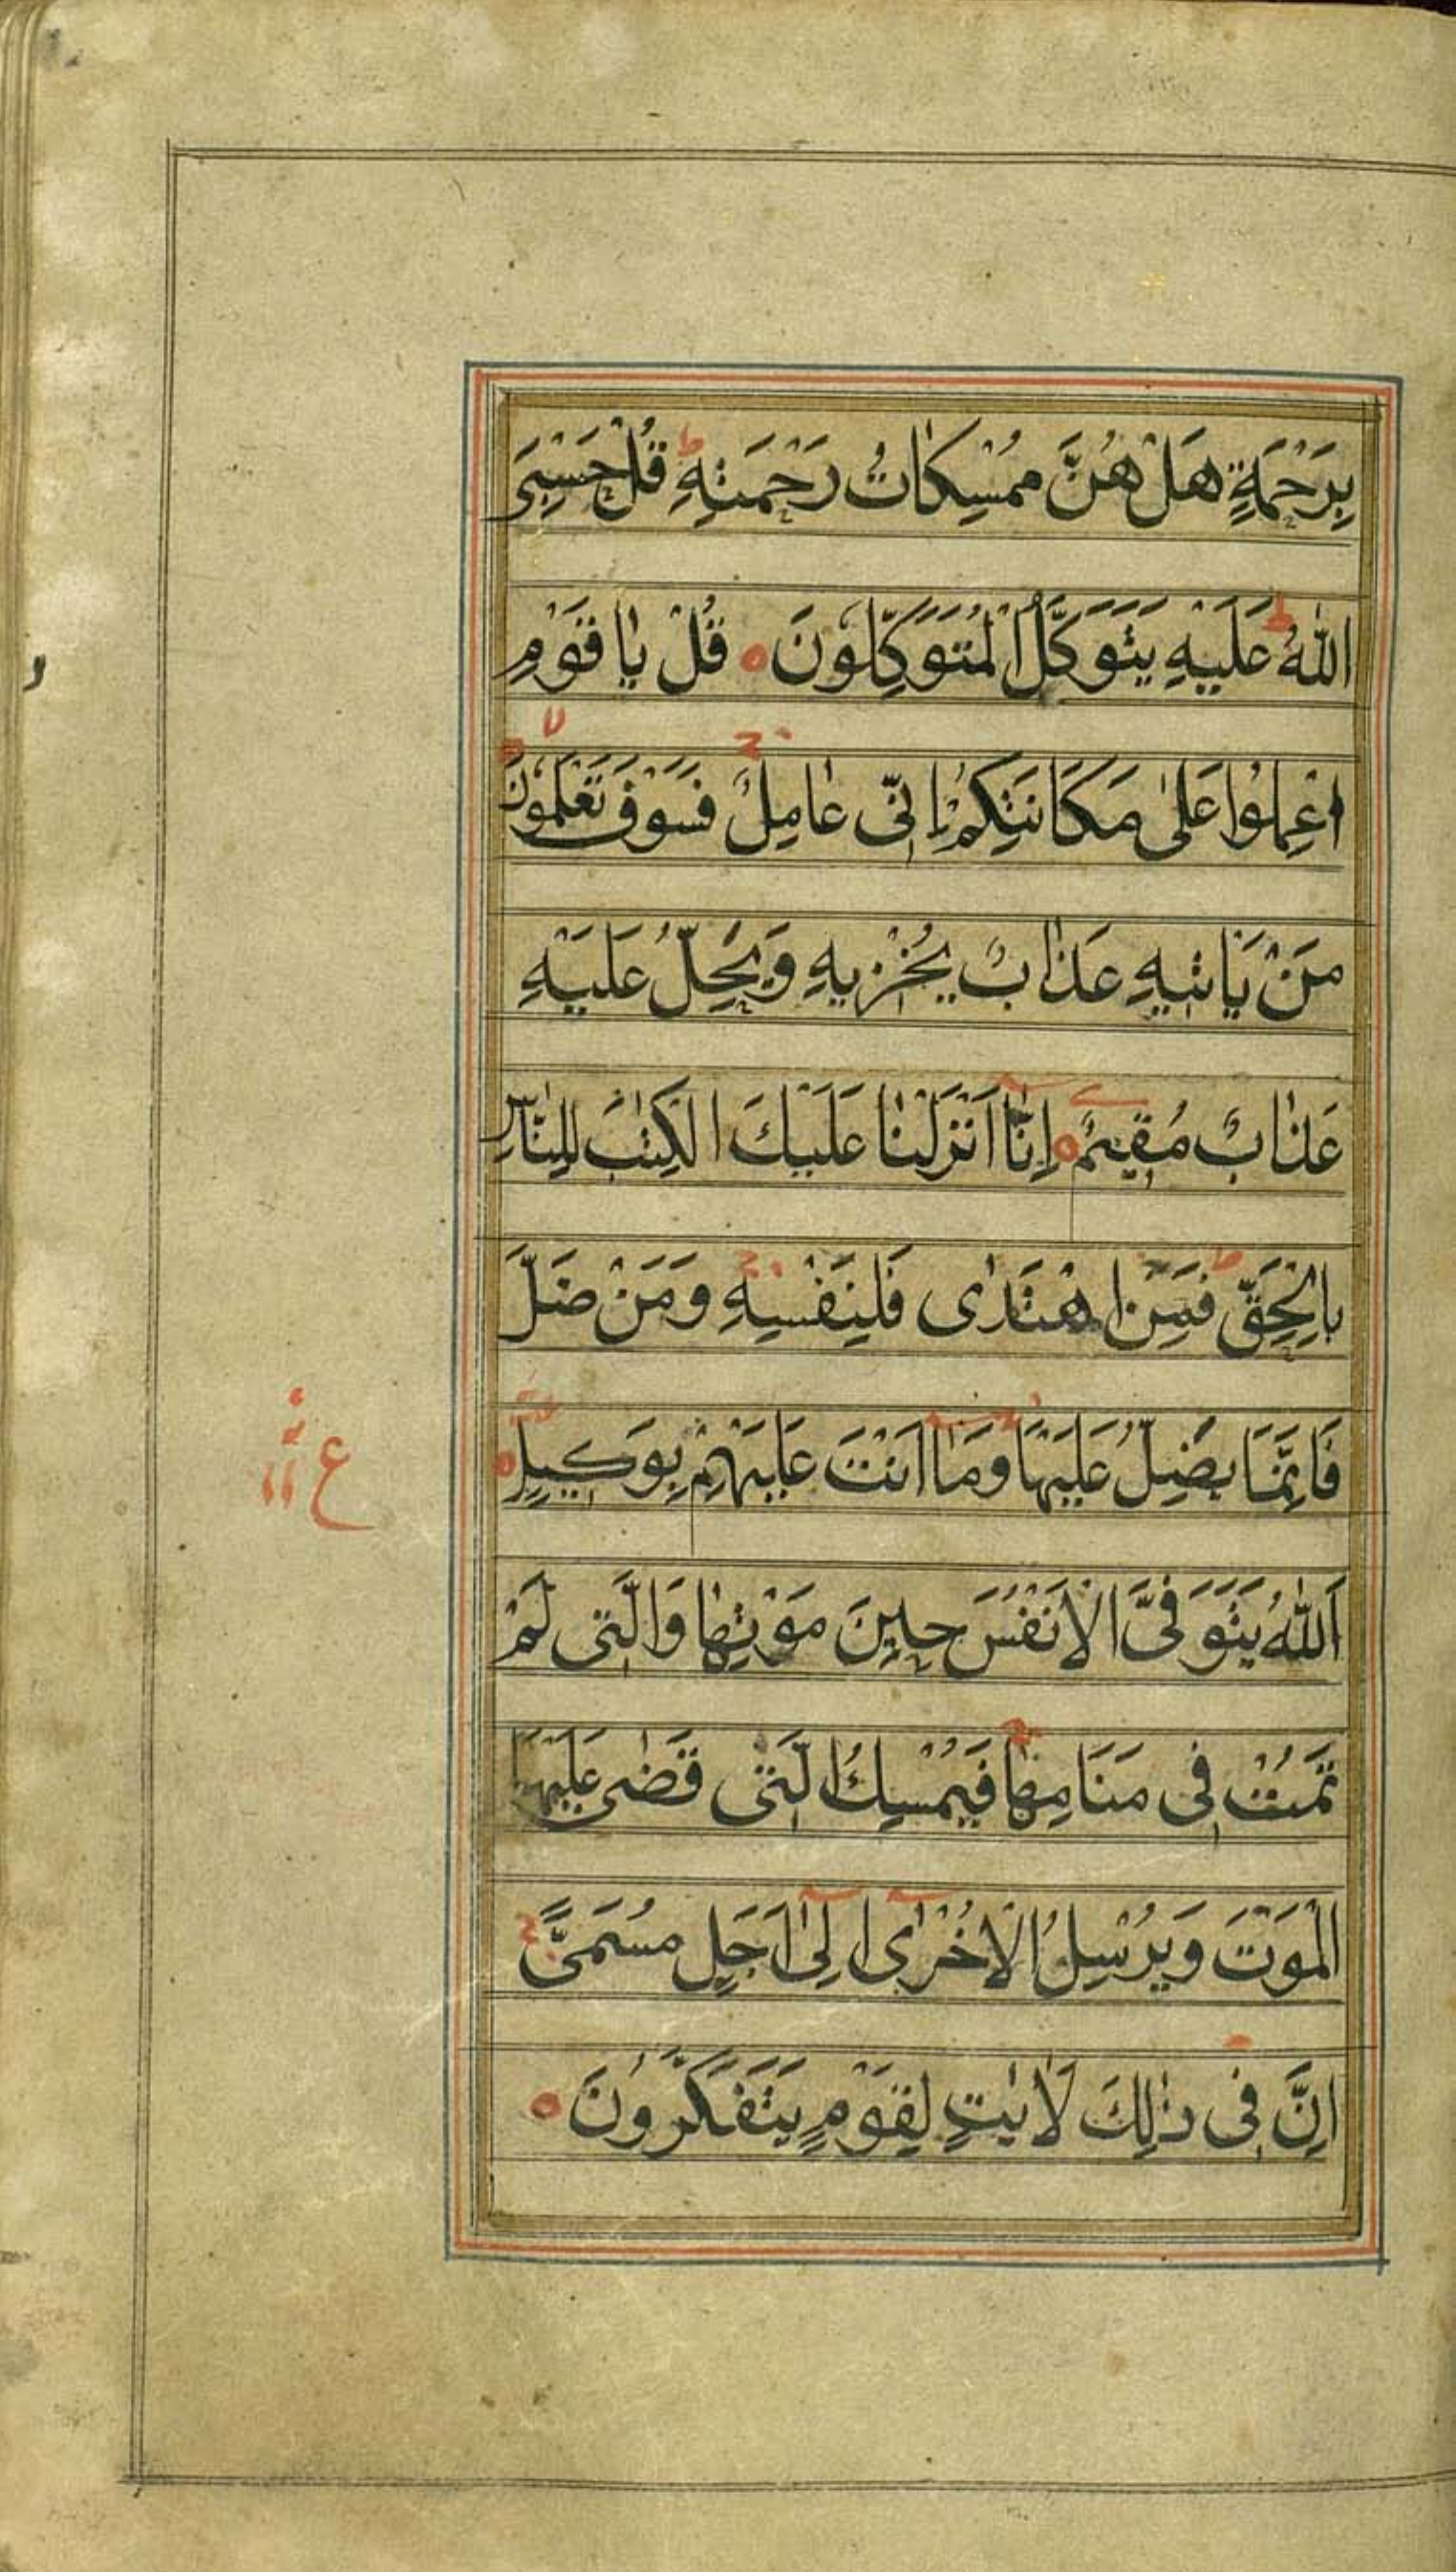 بِرَحْمَةٍ هَلْ هُنَّ مُمْسِكَاتُ رَحْمَتِهِ ط قُلْ حَسْبِيَ
اللّٰهُ ط عَلَيْهِ يَتَوَكَّلُ الْمُتَوَكِّلُونَ ه قُلْ يَا قَوْمِ
اعْمِلُوا عَلٰى مَكَانَتِكُمْ اِنّٖى عَامِلٌ ج فَسَوْفَ تَعْلَمُونَ لا
مَنْ يَاْتٖيهِ عَذَابٌ يُخْزٖيهِ وَيَحِلُّ عَلَيْهِ
عَذَابٌ مُقٖيمٌ ه اِنَّا اَنْزَلْنَا عَلَيْكَ الْكِتٰبَ لِلنَّاسِ
بِالْحَقِّ ط فَمَنِ اهْتَدٰى فَلِنَفْسِهِ ج وَمَنْ ضَلَّ
فَاِنَّمَا يَضِلُّ عَلَيْهَا وَمَا اَنْتَ عَلَيْهِمْ بِوَكٖيلٍ ه
ع ١١
اَللّٰهُ يَتَوَفَّى الْاَنْفُسَ حٖينَ مَوْتِهَا وَالَّتٖى لَمْ
تَمُتْ فٖى مَنَامِهَا ج فَيُمْسِكُ الَّتٖى قَضٰى عَلَيْهَا
الْمَوْتَ وَيُرْسِلُ الْاُخْرٰى اِلٰى اَجَلٍ مُسَمًّى ج
اِنَّ فٖى ذٰلِكَ لَاٰيٰتٍ لِقَوْمٍ يَتَفَكَّرُونَ ه